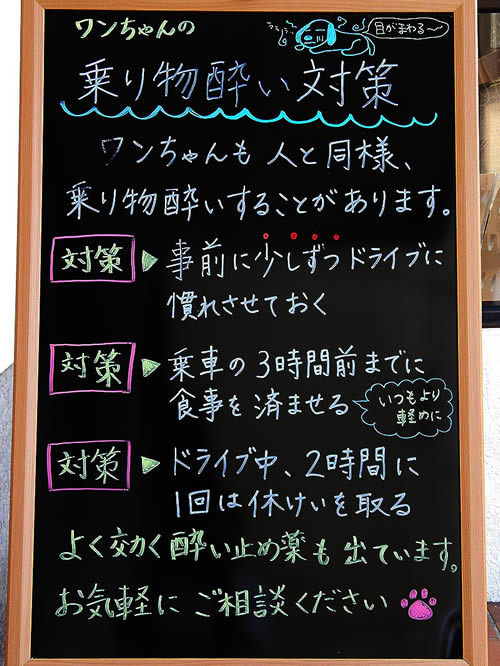 ワンちゃんの
目がまわる〜
乗り物酔い対策
ワンちゃんも人と同様、
乗り物酔いすることがあります。
対策 ▶ 事前に少しずつドライブに
慣れさせておく
対策 ▶ 乗車の3時間前までに
食事を済ませる
いつもより
軽めに
対策 ▶ ドライブ中、2時間に
1回は休けいを取る
よく効く酔い止め薬も出ています。
お気軽にご相談ください